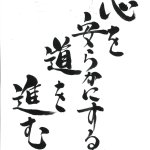 心を
安らかにする
道を
進む